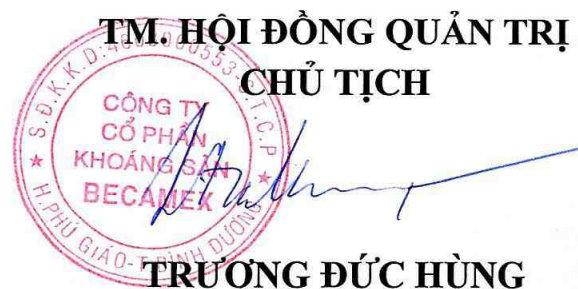 TM. HỘI ĐỒNG QUẢN TRỊ
CHỦ TỊCH
CÔNG TY
CỔ PHẦN
KHOÁNG SẢN
BECAMEX
H.PHÚ GIÁO-T.BÌNH DƯƠNG
TRƯƠNG ĐỨC HÙNG